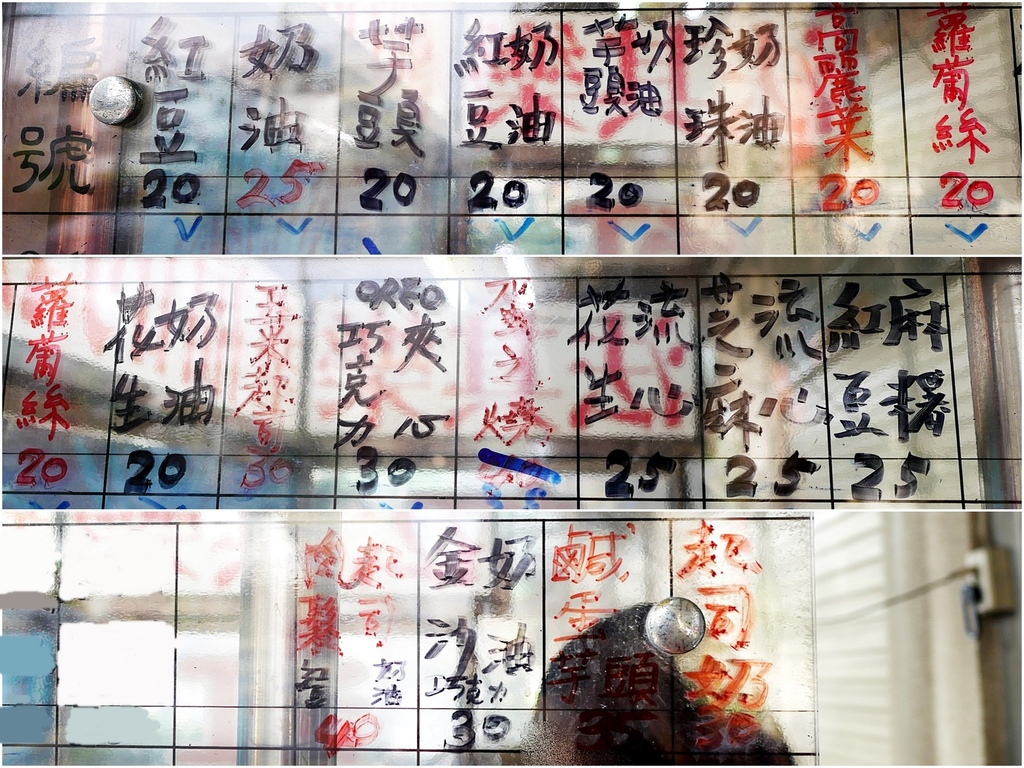 編號
紅豆
20
奶油
25
芋頭
20
紅豆奶油
20
芋頭奶油
20
珍珠奶油
20
高麗菜
20
蘿蔔絲
20
蘿蔔絲
20
花生奶油
20
玉米起司
30
OREO
巧克力夾心
30
花生流心
25
芝麻流心
25
紅豆麻糬
25
肉鬆
起司
奶油
40
金沙奶油
巧克力
30
鹹蛋芋頭
起司奶
30